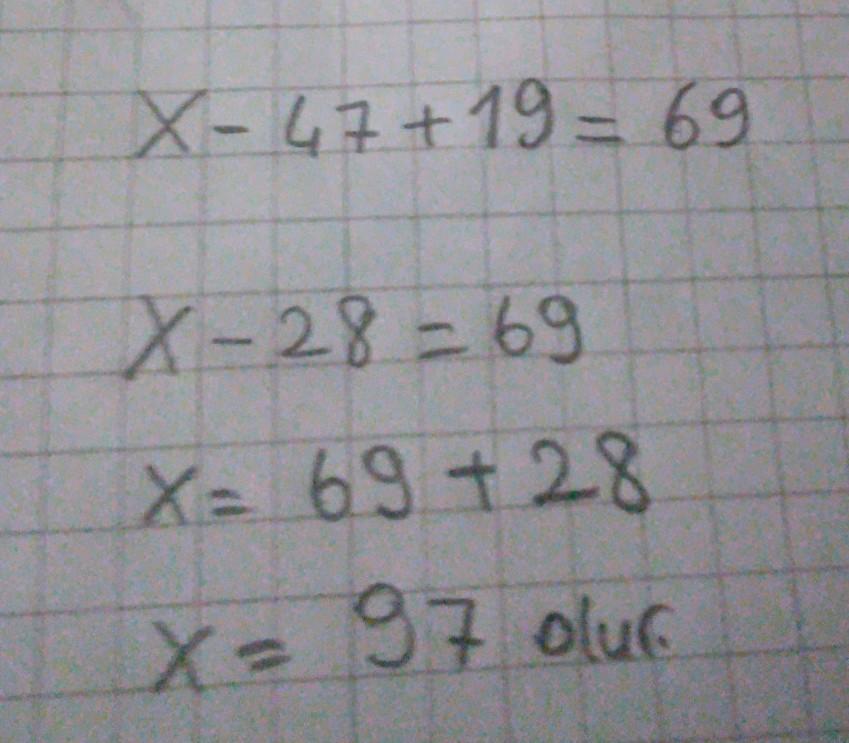 X - 47 + 19 = 69
X - 28 = 69
X = 69 + 28
X = 97 olur.